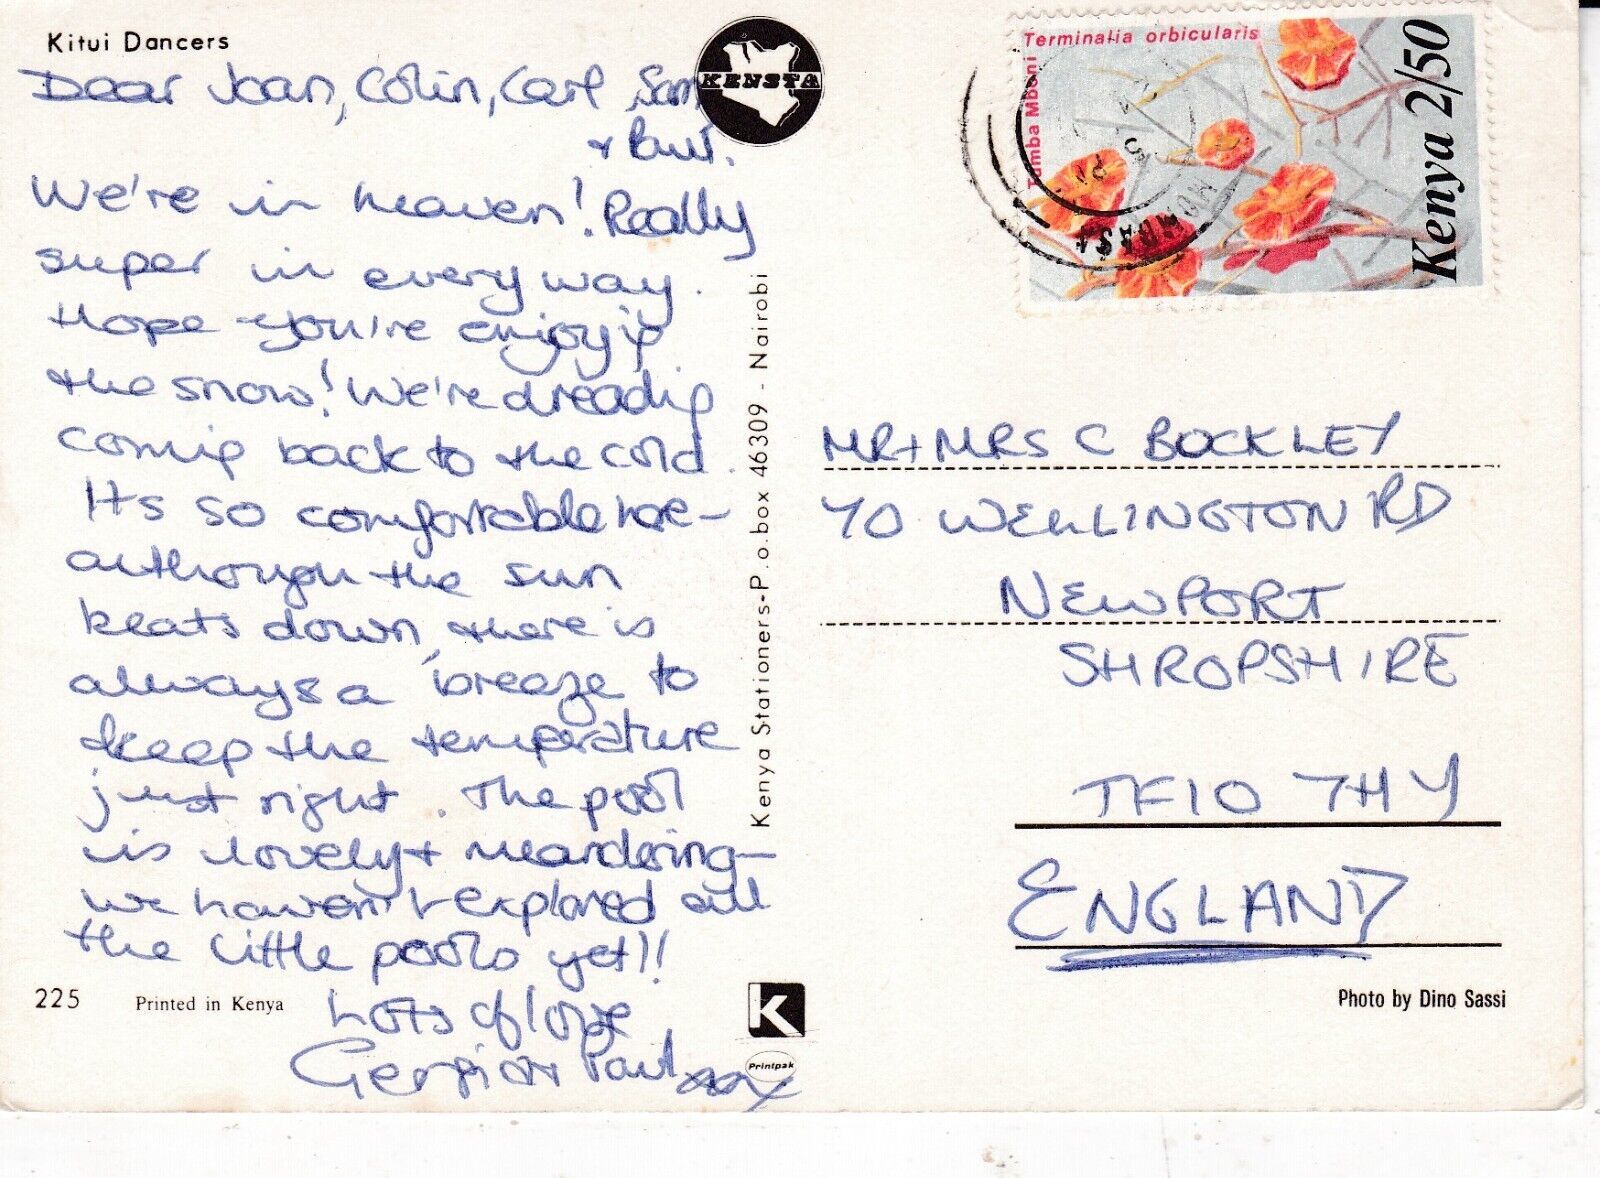 Kitui Dancers
Dear Joan, Colin, Carl, Sam
+ Paul.
We're in heaven! Really
super in every way.
Hope you're enjoying
the snow! We're dreading
coming back to the cold.
Its so comfortable here -
although the sun
beats down, there is
always a breeze to
keep the temperature
just right. The pool
is lovely + meandering -
we haven't explored all
the little pools yet!!
Lots of love
Paul
225 Printed in Kenya
KENSTA
Kenya Stationers-P.o.box 46309 - Nairobi
K
Printpak
Terminalia orbicularis
Tumba Mboni
Kenya 2/50
MOMBASA
MR + MRS C BOCKLEY
70 WELLINGTON RD
NEWPORT
SHROPSHIRE
TF10 7HY
ENGLAND
Photo by Dino Sassi